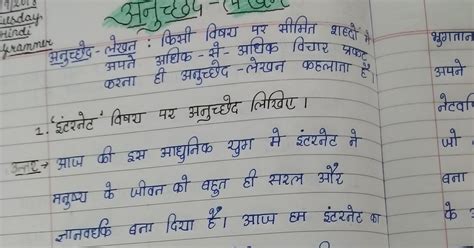 अनुच्छेद-लेखन
Tuesday
Hindi
Grammer
अनुच्छेद-लेखन : किसी विषय पर सीमित शब्दों में
अपने अधिक-से-अधिक विचार प्रकट
करना ही अनुच्छेद-लेखन कहलाता है।
1. 'इंटरनेट' विषय पर अनुच्छेद लिखिए।
उत्तर → आज की इस आधुनिक युग मे इंटरनेट ने
मनुष्य के जीवन को बहुत ही सरल और
ज्ञानवर्धक बना दिया है। आज हम इंटरनेट का
भुगतान
अपने
जो
बना
के